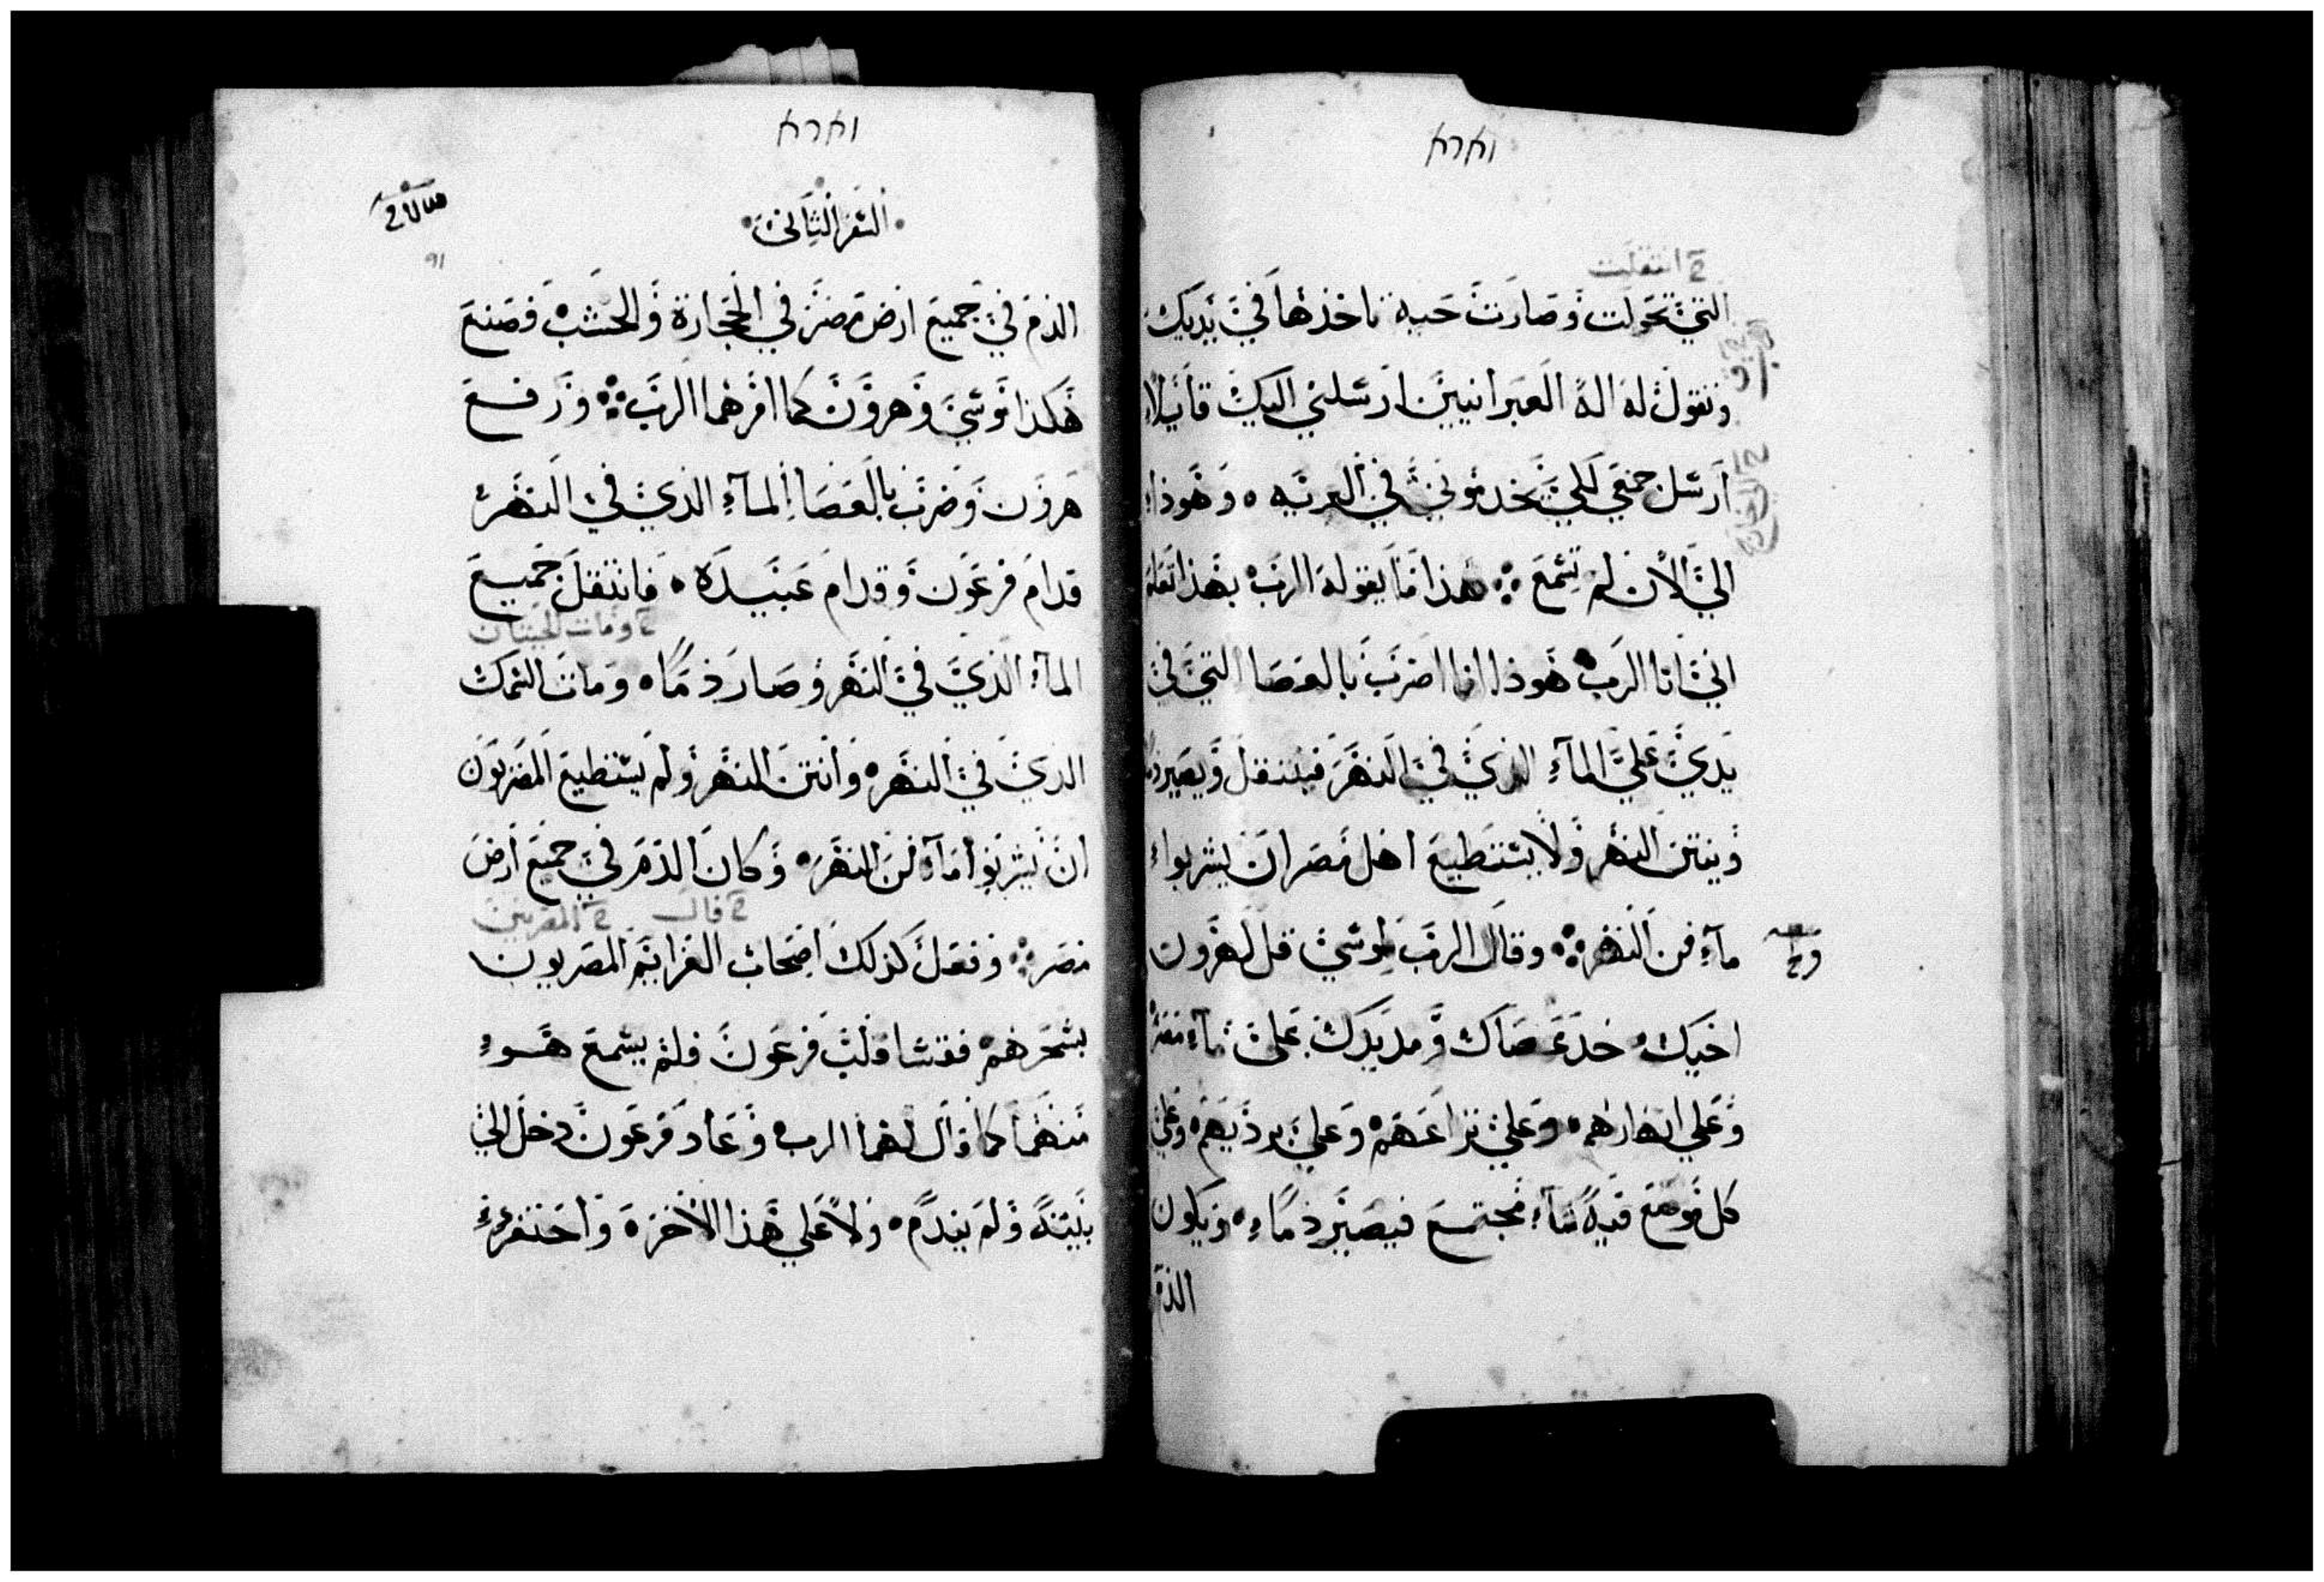 וארא
خ انتقلت
التي تحولت وصارت حيه تاخذها في يديك
وتقول له اله العبرانيين ارسلني اليك قايلا
ارسل جمعي لكي يخدموني في البريه ۰ وهوذا
الي الان لم تسمع ⁘ هذا ما يقوله الرب بهذا تعلم
اني انا الرب هوذا انا اضرب بالعصا التي في
يدي علي المآء الذي في النهر فينتقل ويصير دما
وينتن النهر ولا يستطيع اهل مصر ان يشربوا
مآء من النهر ⁘ وقال الرب لموسي قل لهرون
اخيك خد عصاك ومد يدك علي مآء مصر
وعلي انهارهم وعلي تراعهم وعلي برديهم وعلي
كل موضع فيه مآء مجتمع فيصير دماء ۰ ويكون
الدم
וארא
السفر الثاني
الدم في جميع ارض مصر في الحجارة والخشب فصنع
هكذا موسي وهرون كما امرهما الرب ⁘ ورفع
هرون وضرب بالعصا المآء الذي في النهر
قدام فرعون وقدام عبيده ۰ فانتقل جميع
خ ومات الحيتان
المآء الذي في النهر وصار دما ۰ ومات السمك
الذي في النهر ۰ وانتن النهر ولم يستطيع المصريون
ان يشربوا مآء من النهر ۰ وكان الدم في جميع ارض
خ قال خ المصريين
مصر ⁘ وفعل كذلك اصحاب العزايم المصريون
بسحرهم فقسا قلب فرعون فلم يسمع هوء
منهما كما قال لهما الرب ۰ وعاد فرعون دخل الي
بيته ولم يندم ۰ ولا علي هذا الاخرة واحتفر